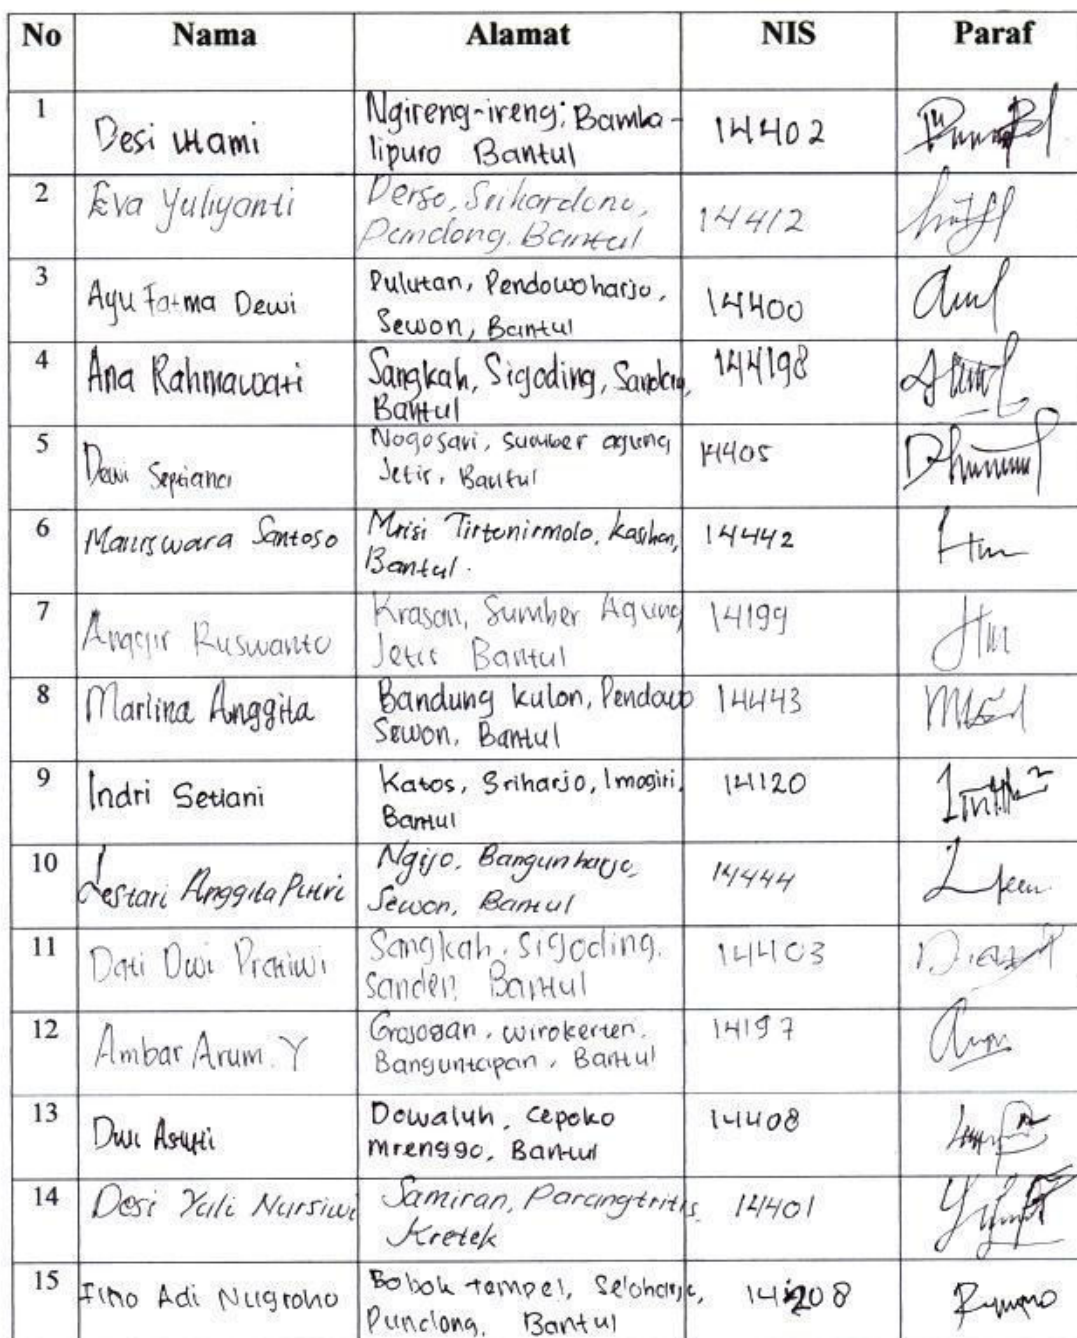 No Nama Alamat NIS Paraf
1 Desi Utami Ngireng-ireng, Bamba-
lipuro Bantul 14402
2 Eva Yuliyanti Derso, Srihardono,
Pundong, Bantul 14412
3 Ayu Fatma Dewi Pulutan, Pendowoharjo,
Sewon, Bantul 14400
4 Ana Rahmawati Sangkah, Sigoding, Sanden,
Bantul 144198
5 Dewi Septiana Nogosari, Sumber agung
Jetis, Bantul 14405
6 Santoso Mrisi Tirtonirmolo, Kasihan,
Bantul. 14442
7 Ruswanto Krasan, Sumber Agung
Jetis Bantul 14199
8 Marlina Anggita Bandung kulon, Pendowo
Sewon, Bantul 14443
9 Indri Setiani Katos, Sriharjo, Imogiri,
Bantul 14120
10 Lestari Anggita Putri Ngijo, Bangunharjo,
Sewon, Bantul 14444
11 Dati Dwi Pratiwi Sangkah, Sigoding,
Sanden, Bantul 14403
12 Ambar Arum. Y Grojogan, wirokerten,
Banguntapan, Bantul 14197
13 Dwi Astuti Dowaluh, Cepoko
mrenggo, Bantul 14408
14 Desi Yuli Nursiwi Samiran, Parangtritis,
Kretek 14401
15 Adi Nugroho Bobok tempel,
Pundong, Bantul 14208